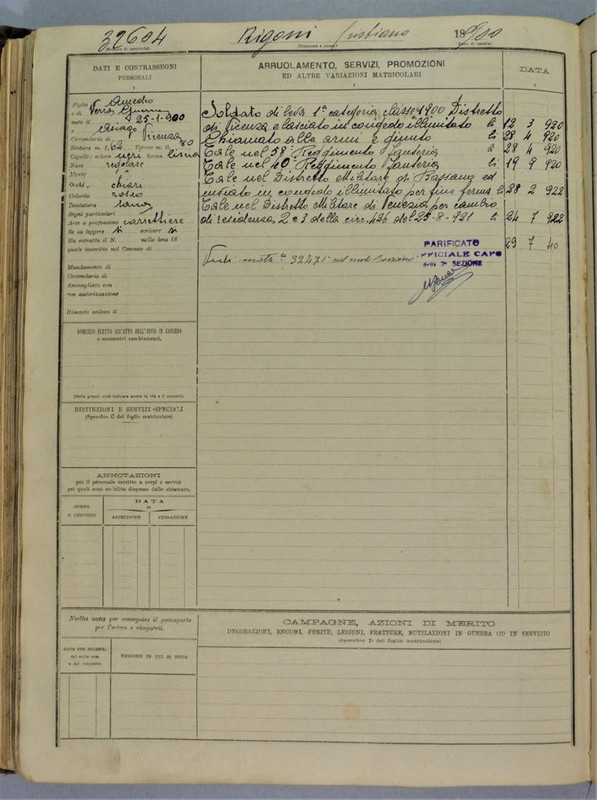 39684 Rigoni Cristiano 1900
(Numero di matricola) (Cognome e nome) (Anno di nascita)
DATI E CONTRASSEGNI
PERSONALI
1
Figlio di Amedeo
e di
nato il 25-1-900
a Asiago
Circondario di Vicenza
Statura m. 1,62 Torace m. 0, 80
Capelli: colore neri forma liscia
Naso regolare
Mento "
Occhi chiari
Colorito roseo
Dentatura sana
Segni particolari
Arte o professione carrettiere
Se sa leggere si scrivere si
Ha estratto il N. nella leva 18
quale inscritto nel Comune di
Mandamento di
Circondario di
Ammogliato con
con autorizzazione
Rimasto vedovo il
DOMICILIO ELETTO ALL'ATTO DELL'INVIO IN CONGEDO
e successivi cambiamenti.
(Nelle grandi città indicare anche la via e il numero).
DISTINZIONI E SERVIZI SPECIALI
(Specchio C del foglio matricolare)
ANNOTAZIONI
per il personale ascritto a corpi o servizi
pei quali sono stabilite dispense dalle chiamate.
CORPO
O SERVIZIO
DATA
DI
ASCRIZIONE CESSAZIONE
ARRUOLAMENTO, SERVIZI, PROMOZIONI
ED ALTRE VARIAZIONI MATRICOLARI
DATA
Soldato di leva 1ª categoria classe 1900 Distretto
di Vicenza e lasciato in congedo illimitato li 12 3 920
Chiamato alle armi e giunto li 28 4 920
Tale nel 58° Reggimento Fanteria li 28 4 920
Tale nel 40° Reggimento Fanteria li 19 9 920
Tale nel Distretto Militare di Bassano ed
inviato in congedo illimitato per fine ferma li 28 2 922
Tale nel Distretto Militare di Venezia per cambio
di residenza 2 e 3 della circ. 436 del 25-8-921 li 24 7 922
29 7 40
PARIFICATO
UFFICIALE CAPO
della 2ª SEZIONE
Nulla osta per conseguire il passaporto
per l'estero e rimpatrii.
DATA DEL RILASCIO
del nulla osta
e del rimpatrio
REGIONE IN CUI SI RECA
CAMPAGNE, AZIONI DI MERITO
DECORAZIONI, ENCOMI, FERITE, LESIONI, FRATTURE, MUTILAZIONI IN GUERRA OD IN SERVIZIO
(Specchio D del foglio matricolare)